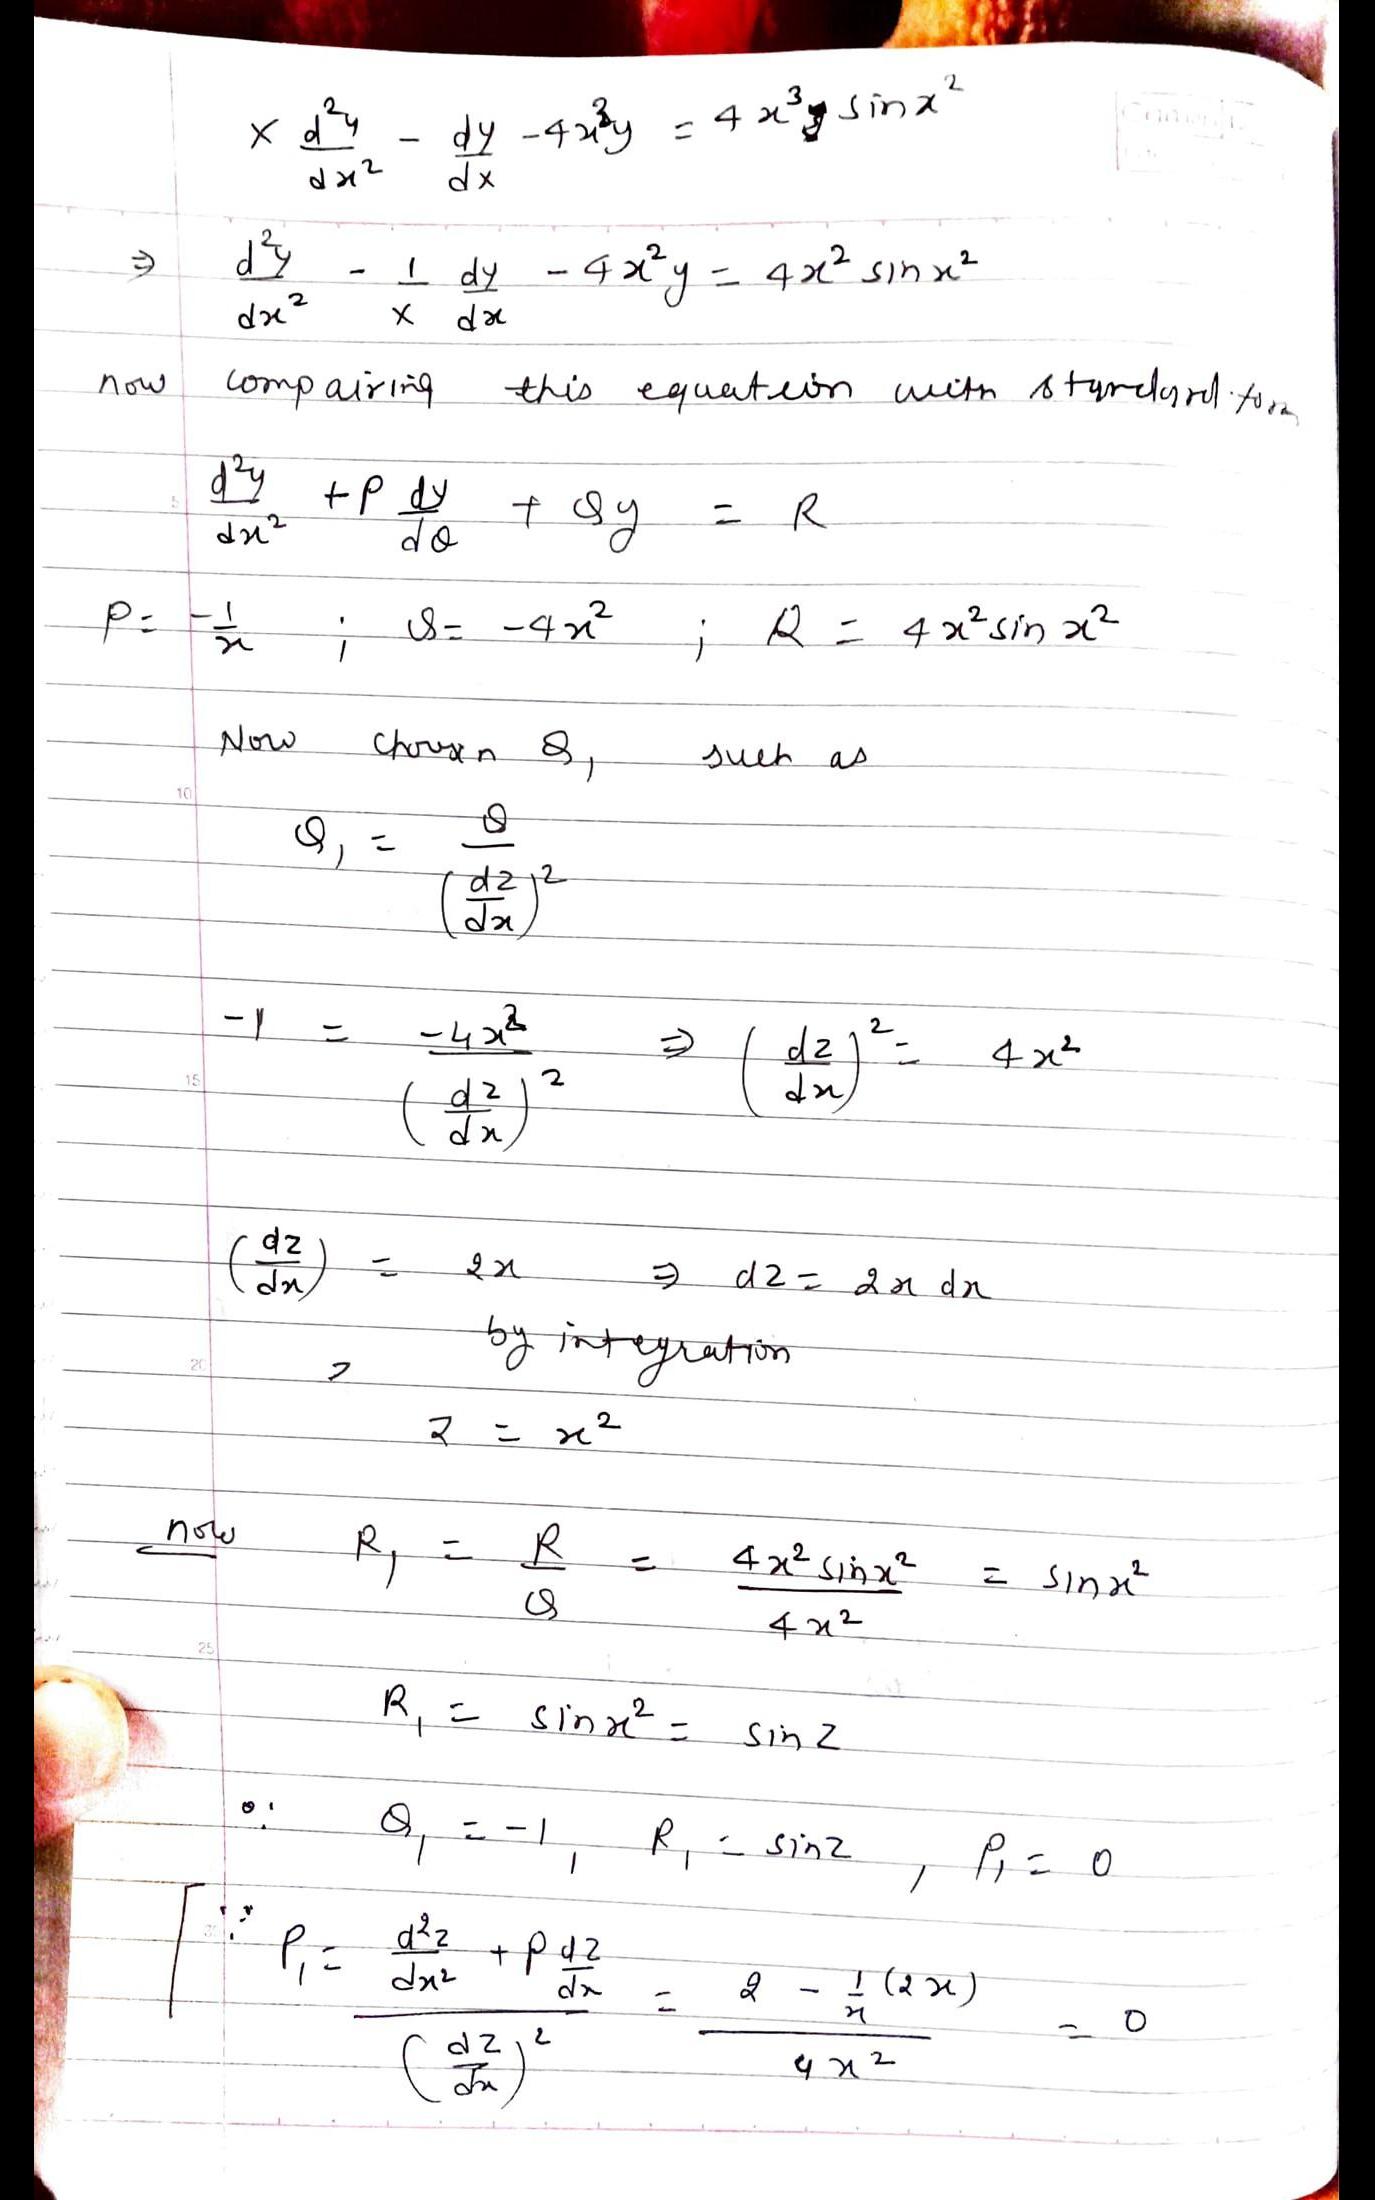 x d²y/dx² - dy/dx - 4x³y = 4x³ sinx²
⇒ d²y/dx² - 1/x dy/dx - 4x²y = 4x² sinx²
now compairing this equation with standard form
d²y/dx² + P dy/dθ + Qy = R
P = -1/x ; Q = -4x² ; R = 4x² sin x²
Now Q₁ such as
10
Q₁ = Q/(dz/dx)²
-1 = -4x²/(dz/dx)² ⇒ (dz/dx)² = 4x²
15
(dz/dx) = 2x ⇒ dz = 2x dx
by integration
20
z = x²
now R₁ = R/Q = 4x² sinx²/4x² = sinx²
25
R₁ = sinx² = sin z
∴ Q₁ = -1, R₁ = sinz, P₁ = 0
[∵ P₁ = (d²z/dx² + P dz/dx)/(dz/dx)² = (2 - 1/x (2x))/4x² = 0